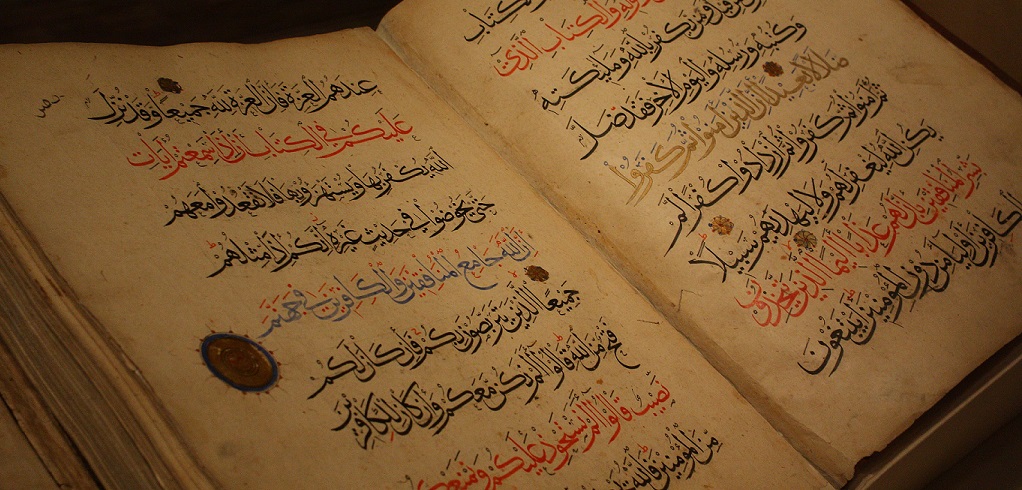 والكتاب
والكتاب الذي
ومن يكفر بالله وملائكته
وكتبه ورسله واليوم الآخر فقد ضل
ضلالا بعيدا إن الذين آمنوا ثم كفروا
ثم آمنوا ثم كفروا ثم ازدادوا كفرا لم
يكن الله ليغفر لهم ولا ليهديهم سبيلا
بشر المنافقين بأن لهم عذابا أليما الذين يتخذون
الكافرين أولياء من دون المؤمنين أيبتغون
عندهم العزة فإن العزة لله جميعا وقد نزل
عليكم في الكتاب أن إذا سمعتم آيات
الله يكفر بها ويستهزأ بها فلا تقعدوا معهم
حتى يخوضوا في حديث غيره إنكم إذا مثلهم
إن الله جامع المنافقين والكافرين في جهنم
جميعا الذين يتربصون بكم فإن كان لكم
فتح من الله قالوا ألم نكن معكم وإن كان للكافرين
نصيب قالوا ألم نستحوذ عليكم ونمنعكم
من المؤمنين فالله